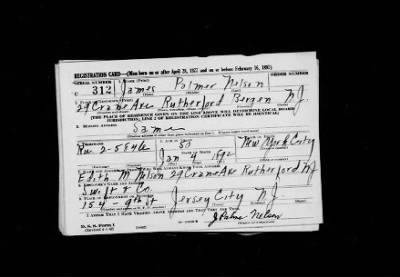 REGISTRATION CARD—(Men born on or after April 28, 1877 and on or before February 16, 1897)
SERIAL NUMBER
ORDER NUMBER
312 James Palmer Nelson
29 Crane Ave Rutherford Bergen N.J.
(THE PLACE OF RESIDENCE GIVEN ON THE LINE ABOVE WILL DETERMINE LOCAL BOARD
JURISDICTION; LINE 2 OF REGISTRATION CERTIFICATE WILL BE IDENTICAL)
Same
Ru 2-5546
50
Jan 9 1892
New York City
Edith M Nelson 29 Crane Ave Rutherford NJ
Swift & Co.
154 - 9th St Jersey City N.J.
I AFFIRM THAT I HAVE VERIFIED ABOVE ANSWERS AND THAT THEY ARE TRUE.
J Palmer Nelson
D. S. S. Form 1